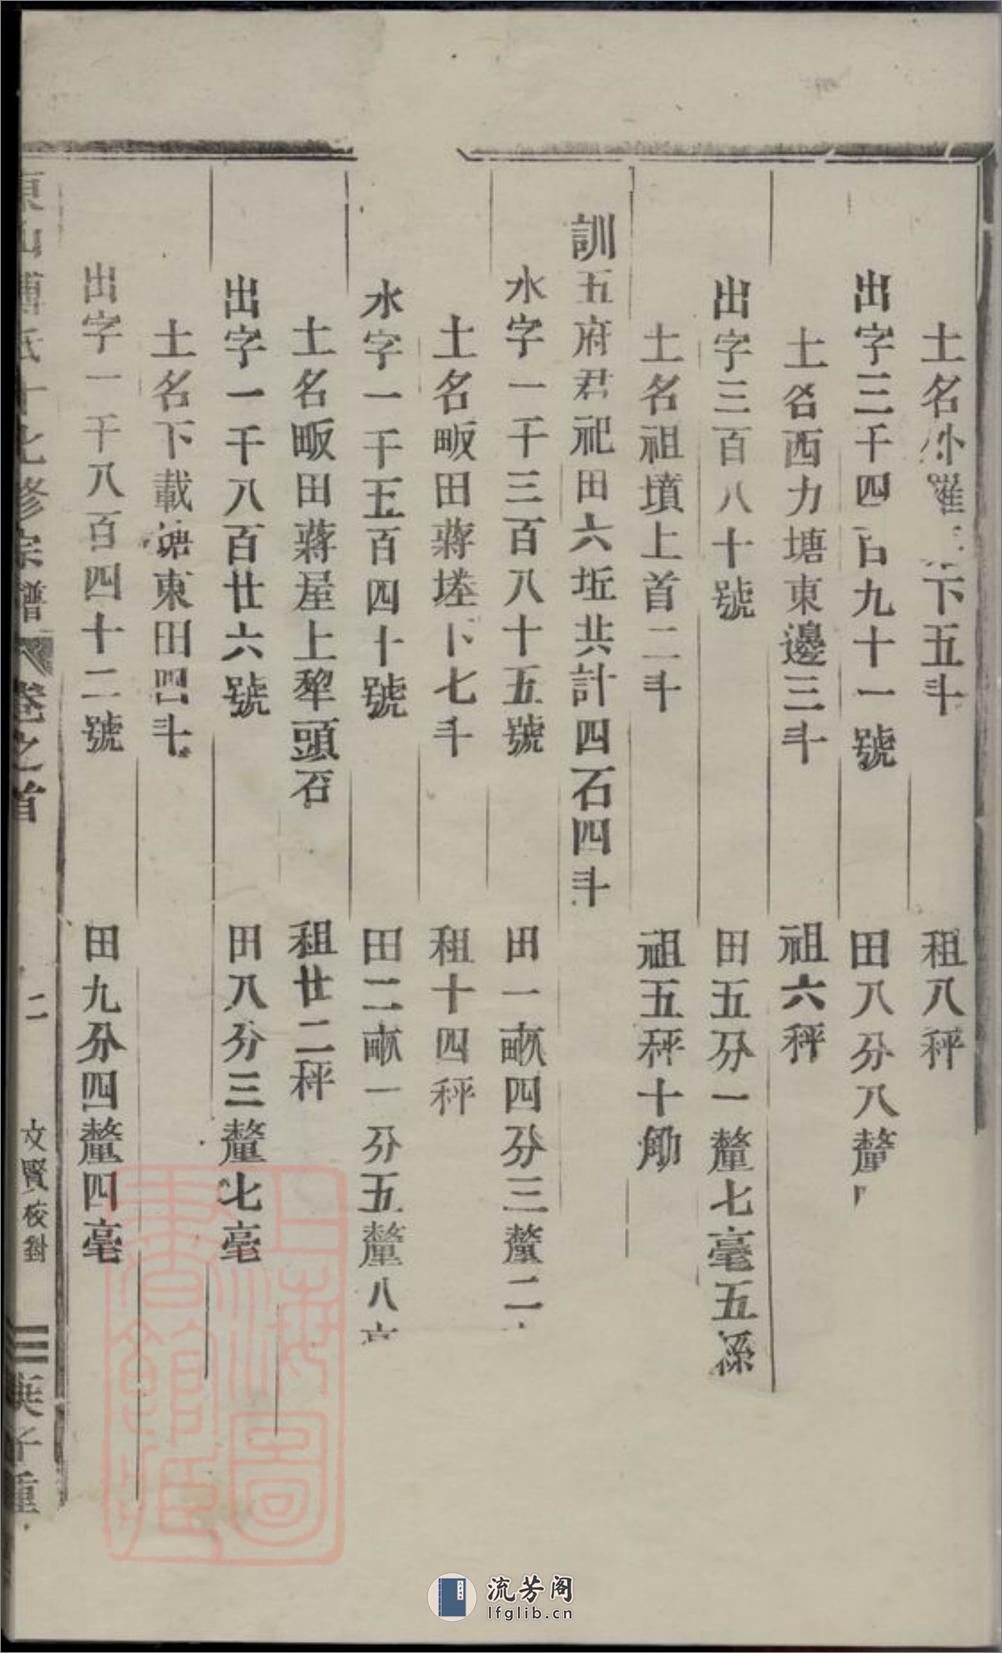 土名外 下五斗 租八秤
出字三千四百九十一號 田八分八釐
土名西力塘東邊三斗 祖六秤
出字三百八十號 田五分一釐七毫五孫
土名祖墳上首二斗 祖五秤十觔
訓五府君祀田六坵共計四石四斗
水字一千三百八十五號 田一畝四分三釐二
土名畈田蔣塋下七斗 租十四秤
水字一千五百四十號 田二畝一分五釐八毫
土名畈田蔣屋上犂頭石 租廿二秤
出字一千八百廿六號 田八分三釐七毫
土名下載塘東田四斗
出字一千八百四十二號 田九分四釐四毫
東山傅氏十七修宗譜 卷之首 二 文賢校對 庚子重
上海圖書館藏
流芳阁
lfglib.cn